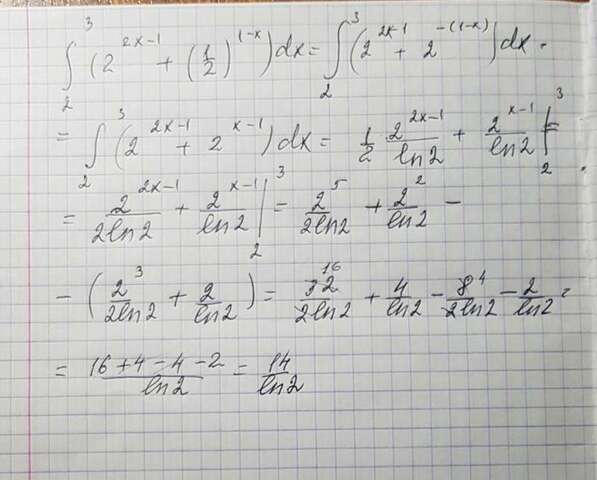 ∫₂³ (2^(2x-1) + (1/2)^(1-x)) dx = ∫₂³ (2^(2x-1) + 2^(-(1-x))) dx =
= ∫₂³ (2^(2x-1) + 2^(x-1)) dx = 1/2 2^(2x-1)/ln2 + 2^(x-1)/ln2 |₂³ =
= 2^(2x-1)/2ln2 + 2^(x-1)/ln2 |₂³ = 2^5/2ln2 + 2^2/ln2 -
- (2^3/2ln2 + 2/ln2) = 32^16/2ln2 + 4/ln2 - 8^4/2ln2 - 2/ln2 =
= (16+4-4-2)/ln2 = 14/ln2